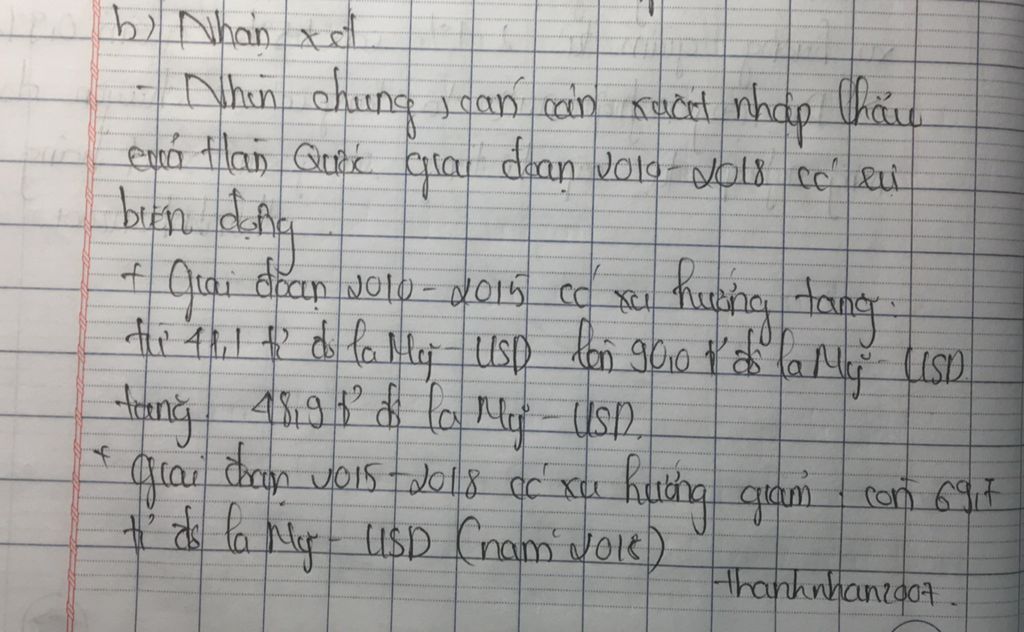 b) Nhận xét
- Nhìn chung, cán cân xuất nhập khẩu
của Hàn Quốc giai đoạn 2010-2018 có sự
biến động
+ Giai đoạn 2010-2015 có xu hướng tăng.
từ 41,1 tỉ đô la Mỹ - USD lên 90,0 tỉ đô la Mỹ - USD
tăng 48,9 tỉ đô la Mỹ - USD.
+ giai đoạn 2015-2018 có xu hướng giảm, còn 69,7
tỉ đô la Mỹ - USD (năm 2018)
thanhnhan2907.